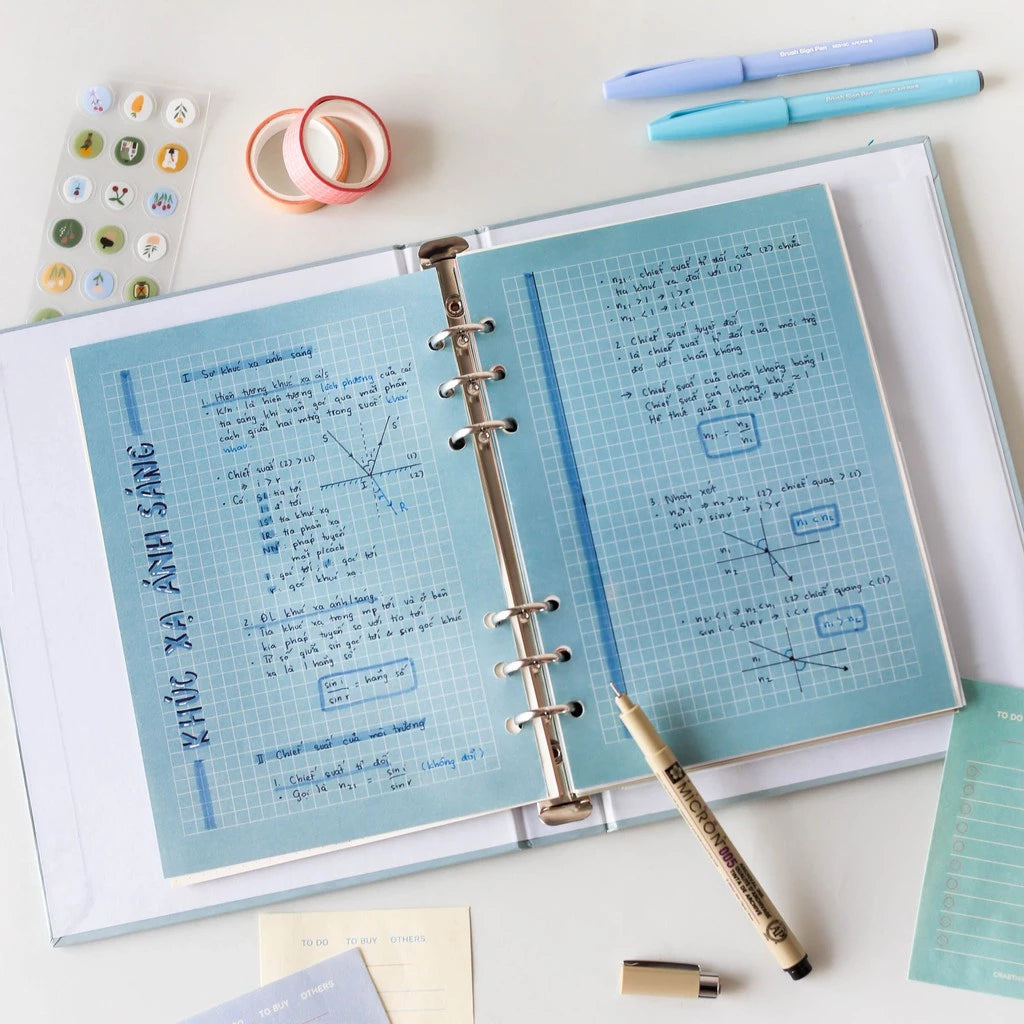 Brush Sign Pen
Brush Sign Pen
KHÚC XẠ ÁNH SÁNG
I. Sự khúc xạ ánh sáng
1. Hiện tượng khúc xạ a/s
K/n: là hiện tượng lệch phương của các
tia sáng khi xiên góc qua mặt phân
cách giữa hai mtrg trong suốt khác
nhau
S
S'
(1)
(2)
I
R
• Chiết suất (2) > (1)
⇒ i > r
• Có
SI: tia tới
I: đ' tới
IS': tia khúc xạ
IR: tia phản xạ
NN': pháp tuyến
mặt p/cách
i: góc tới, i': góc tới
r: góc khúc xạ
2. ĐL khúc xạ ánh sáng
• Tia khúc xạ trong mp tới và ở bên
kia pháp tuyến so với tia tới
• Tỉ số giữa sin góc tới & sin góc khúc
xạ là 1 hằng số
sin i / sin r = hằng số
II Chiết suất của môi trường
1. Chiết suất tỉ đối
• Gọi là n21 = sin i / sin r (không đổi)
• n21: chiết suất tỉ đối của (2) chứa
tia khúc xạ đối với (1)
• n21 > 1 → i > r
• n21 < 1 → i < r
2. Chiết suất tuyệt đối
• là chiết suất tỉ đối của môi trg
đó với chân không
→ Chiết suất của chân không bằng 1
Chiết suất của không khí ≈ 1
Hệ thức giữa 2 chiết suất
n21 = n2 / n1
3. Nhận xét
• n21 > 1 ⇒ n2 > n1, (2) chiết quang > (1)
sin i > sin r → i > r
n1 < n2
n1
n2
• n21 < 1 ⇒ n2 < n1, (2) chiết quang < (1)
sin i < sin r → i < r
n1 > n2
n1
n2
MICRON 005
TO DO
TO DO TO BUY OTHERS
TO BUY OTHERS